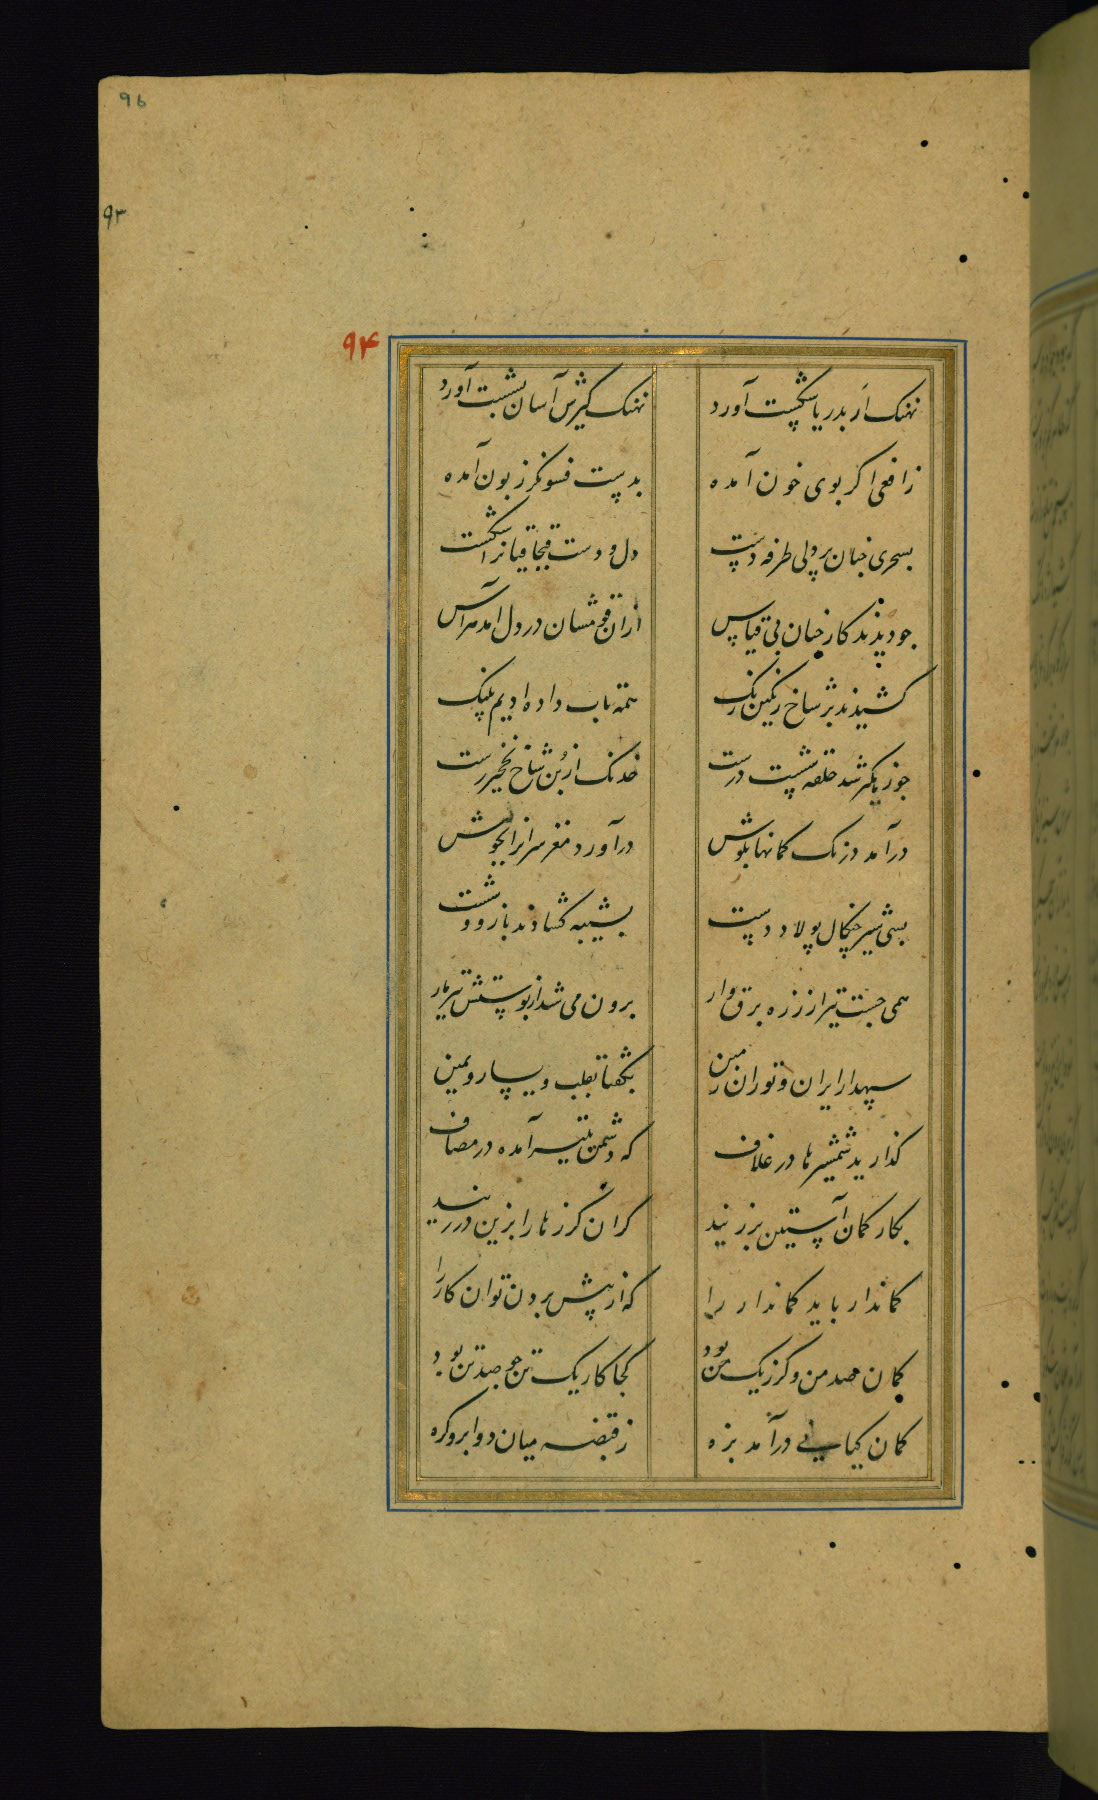 96
۹۳
۹۴
نهنک ار بدریا شکست آورد نهنک کیرش آسان بشست آورد
ز افعی اکر بوی خون آمده بدست فسونکر زبون آمده
بسحری جنان پردلی طرفه دست دل و دست قبجاقیانرا شکست
جو دیدند کار جنان بی قیاس ازان قوشان در دل آمد هراس
کشیدند بر شاخ رنکین رنک همه تاب داده ادیم پلنک
جو زیکر شد حلقه شست درست خدنک از بن شاخ نخجیر رست
درآمد ز کمانها بکوش درآورد مغز سرانرا بجوش
بسی شیر جنکال پولاد دست بشیبه کشادند بازو و شست
همی جست تیر از زره برق وار برون می شد از پوستش تیر مار
سپهدار ایران و توران زمین بکفتا بقلب و یسار و یمین
کذارید شمشیرها در غلاف که دشمن بتیر آمده در مصاف
بکار کمان آستین برزنید کران کرزها را بزین در زنید
کماندار باید کماندار را که از پیش بردن توان کار را
کمان صد من و کرز یک من بود کجا کار یک تن جو صد تن بود
کمان کیانی درآمد بزه ز قبضه میان دو ابرو کره